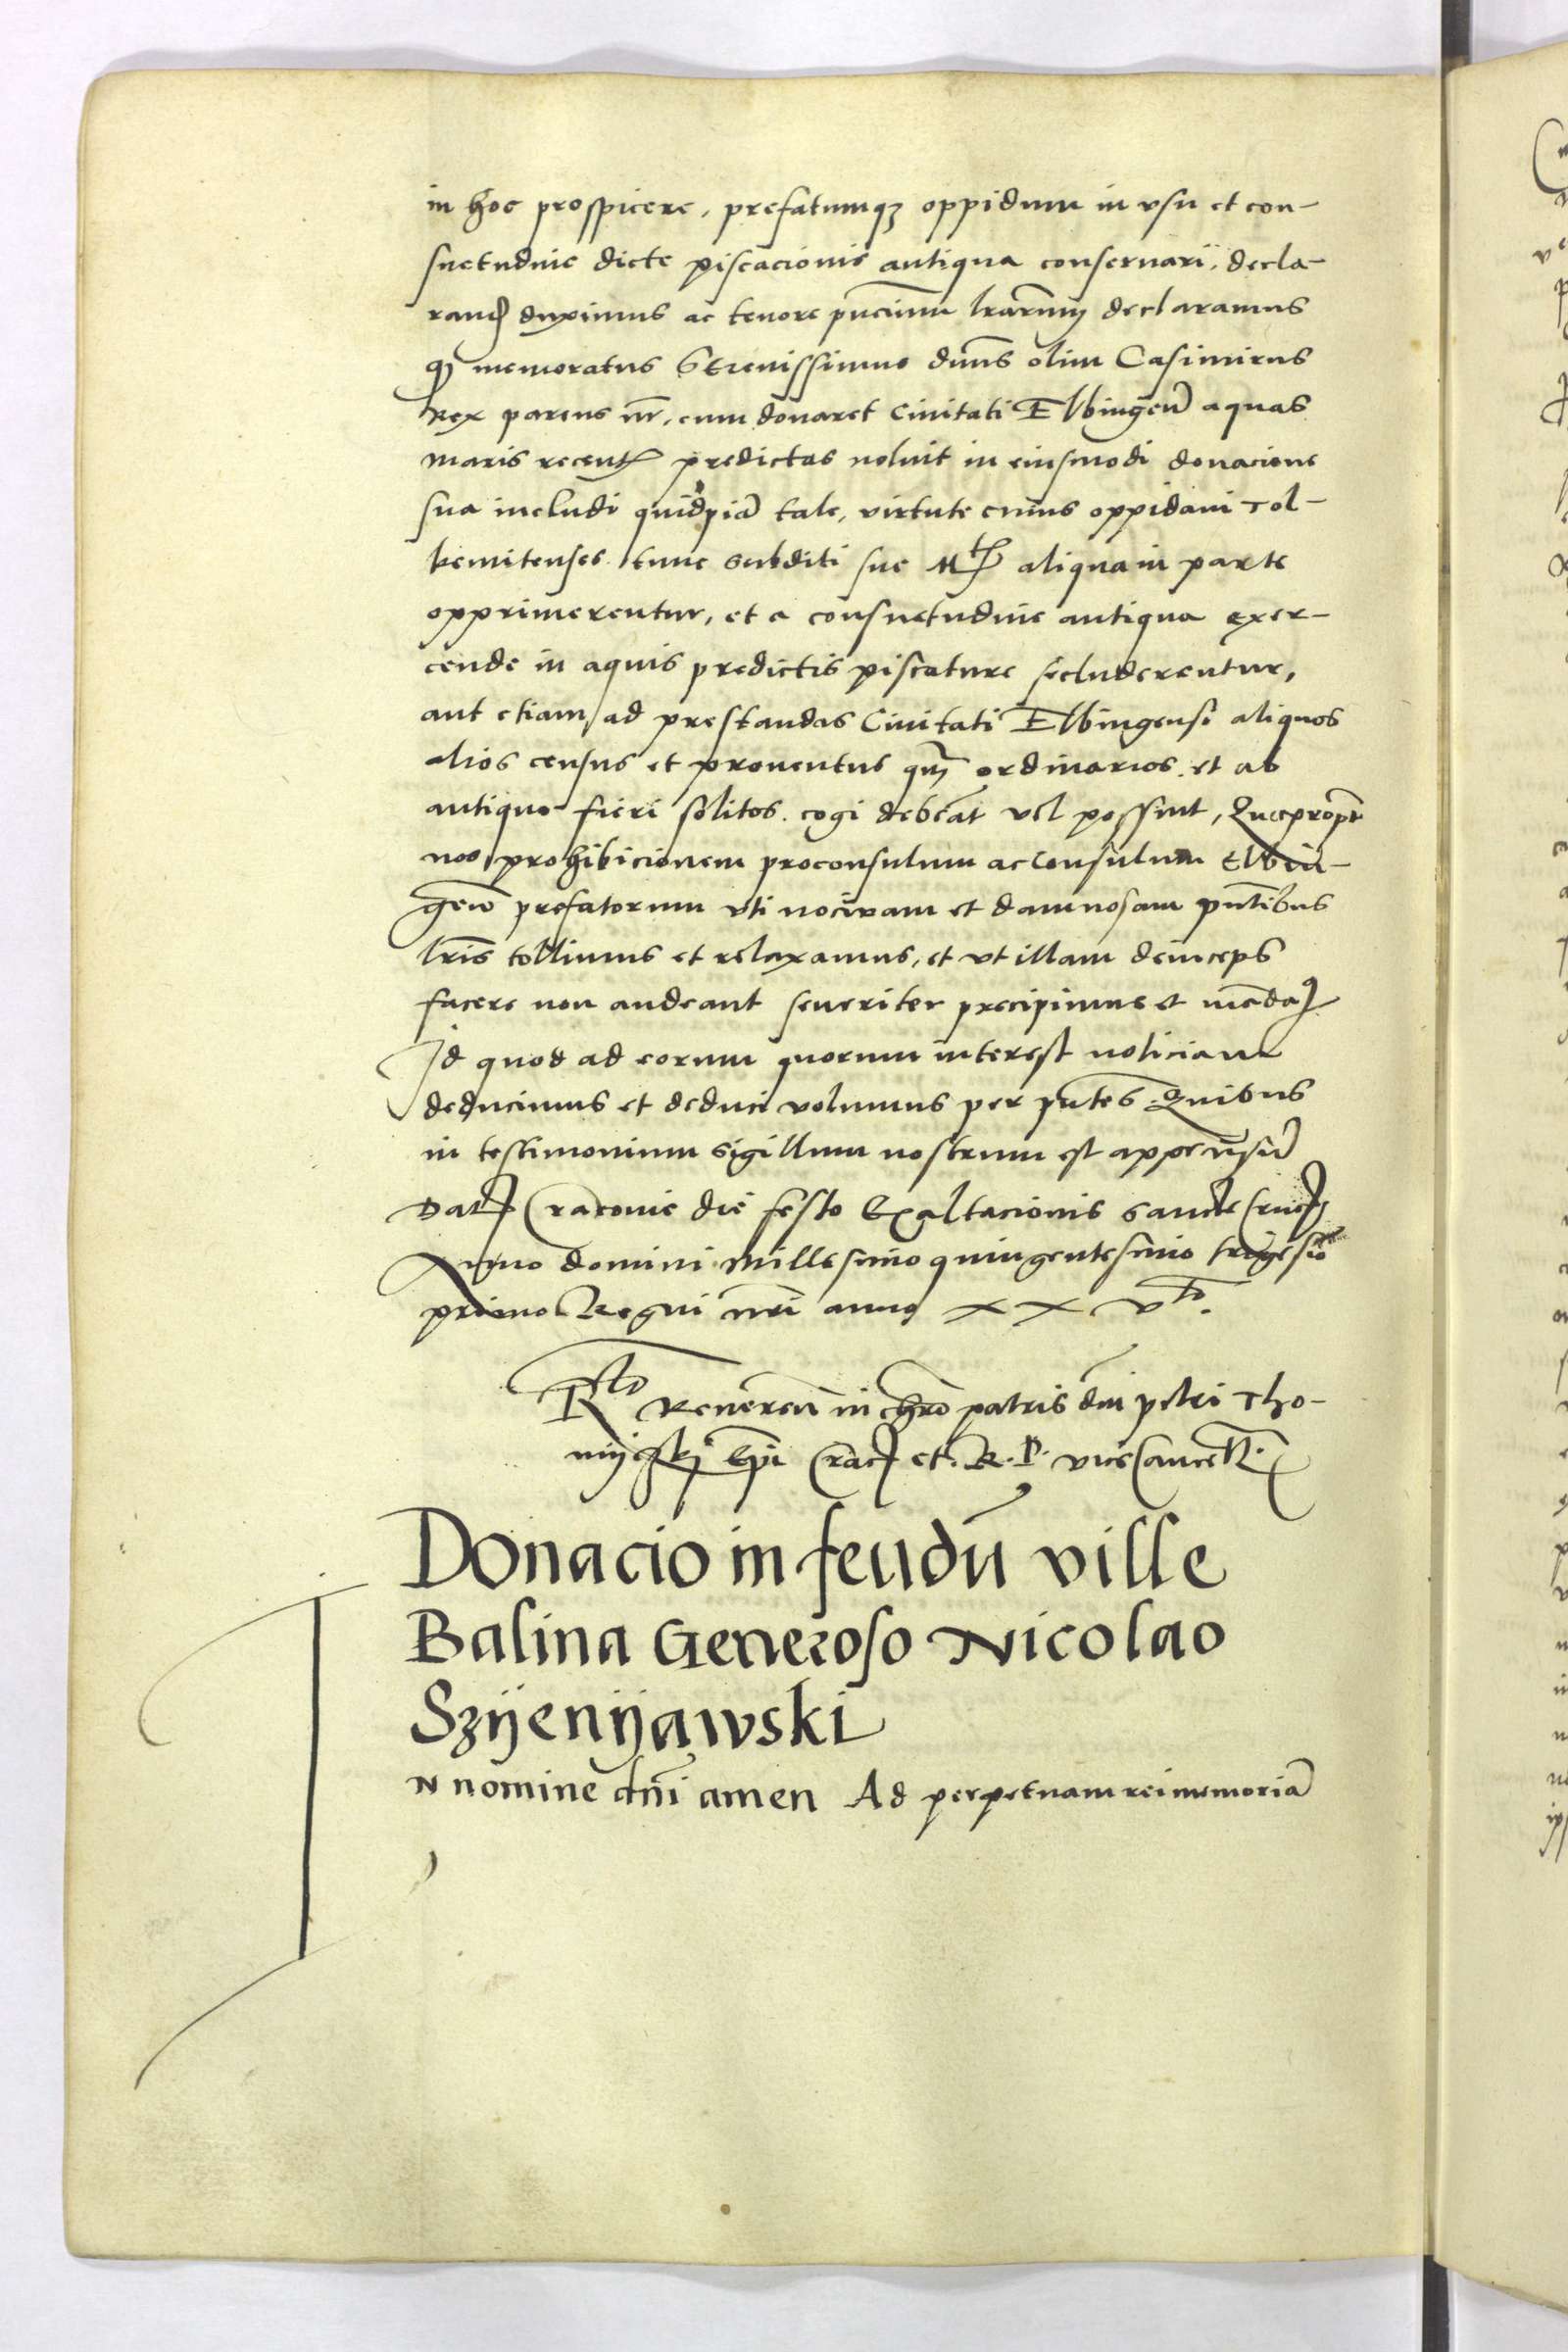 in hoc prospicere, prefatumqꝫ oppidum in vsu et con-
suetudine dicte piscacionis antiqua conseruari, decla-
rand duximus ac tenore pñcium lrarum declaramus
qꝫ memoratus Serenissimus dñus olim Casimirus
Rex parens nr̄, cum donaret Ciuitati Elbingeñ aquas
maris recentꝭ predictas noluit in eiusmodi donacione
sua includi quidpiā tale, virtute cuius oppidani Tol-
kemitenses tunc subditi sue Mtꝭ aliqua in parte
opprimerentur, et a consuetudine antiqua exer-
cende in aquis predictis piscature secluderentur,
aut etiam ad prestandas Ciuitati Elbingensi aliquos
alios census et prouentus qm̄ ordinarios et ab
antiquo fieri solitos cogi debeāt vel possint, Quapropt̄
nos prohibicionem proconsulum ac Consulum Elbin-
geñ prefatorum vti nociuam et damnosam pñtibus
lris̄ tollimus et relaxamus, et vt illam deinceps
facere non audeant seueriter precipimus et mādaꝰ
Id quod ad eorum quorum interest noticiam
deducimus et deduci volumus per pñtes Quibus
in testimonium sigillum nostrum est appensū
Datꝭ Cracouie die festo Exaltacionis sancte Crucꝭ
Anno domini Millesimo quingentesimo trigesīo
primo Regni nr̄i anno XX vto.
Rlo Reuereñ in chro patris dñi petri Tho-
mijczkj Ep̄i Cracꝭ et R. P. viceCancell.
Donacio in feudū ville
Balina Generoso Nicolao
Szÿenÿawski
N nomine dn̄i amen Ad perpetuam rei memoriā